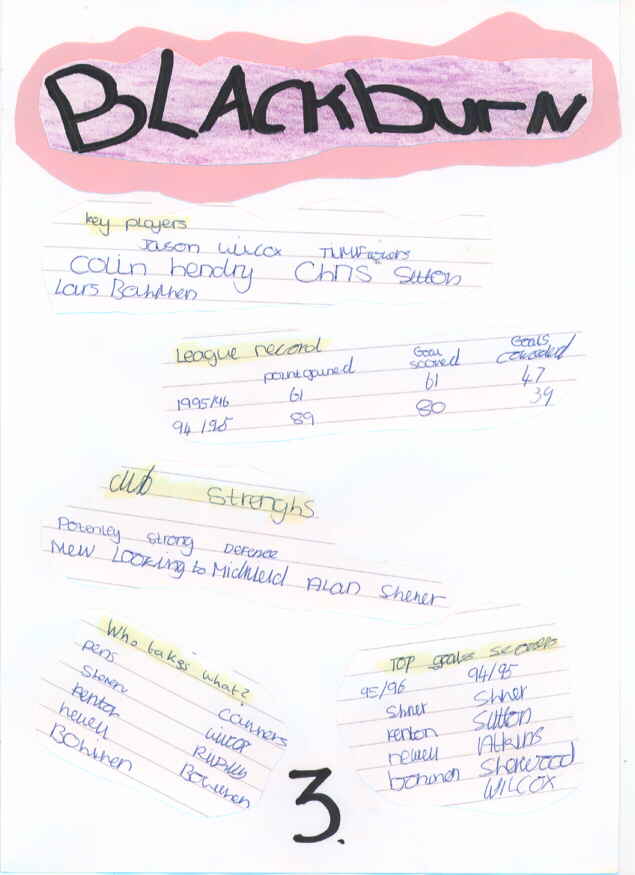 BLACKburN
key players
Jason Wilcox Tim Flowers
Colin hendry Chris Sutton
Lars Bohinen
League record
point gained Goal scored Goals conceded
1995/96 61 61 47
94/95 89 80 39
club Strenghs
Potenley strong Defence
New Looking to Midfield Alan Sherer
Who takes what?
pens Corners
Sherer Wilcox
Fenton Ripley
newell Bohinen
Bohinen
TOP goals scorers
95/96 94/95
Shner Shner
Fenton Sutton
newell Atkins
bohinen Sherwood
WILCOX
3.